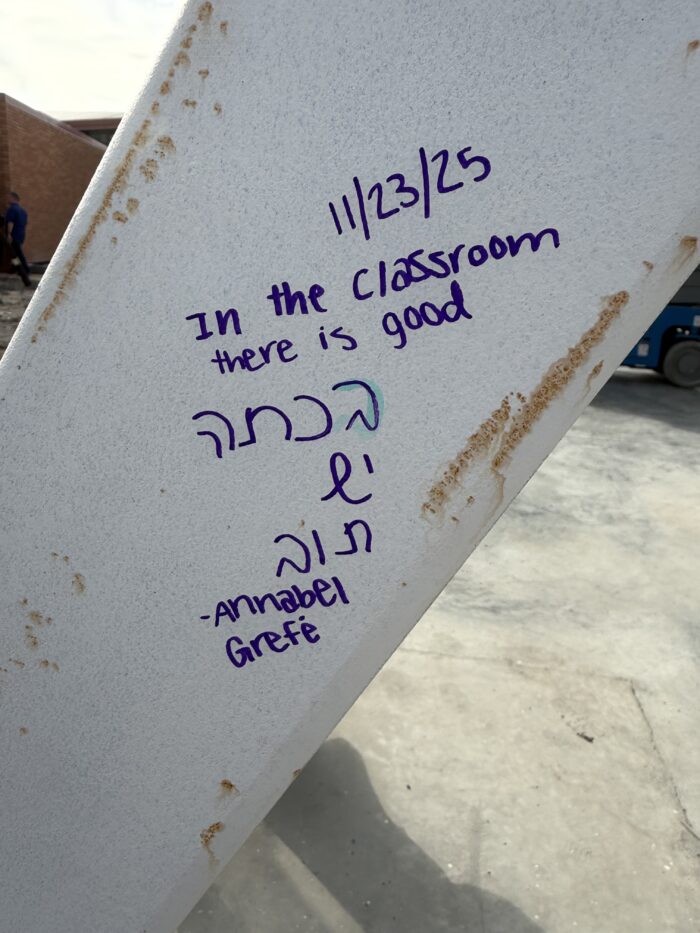 11/23/25
In the classroom
there is good
בכתה
יש
תוב
-Annabel
Grefé